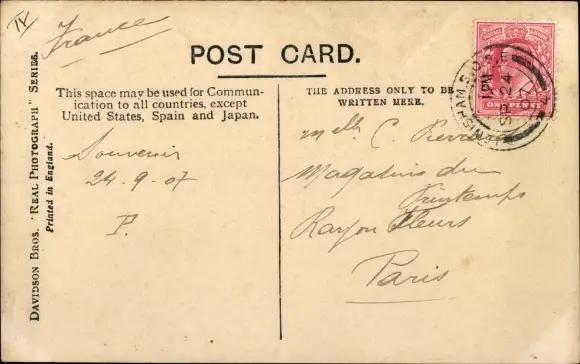 IV
France
POST CARD.
This space may be used for Commun-
ication to all countries, except
United States, Spain and Japan.
Souvenir
24.9.07
P.
THE ADDRESS ONLY TO BE
WRITTEN HERE.
Melle C.
Magasins du
Printemps
Rayon Fleurs
Paris
DAVIDSON BROS. "REAL PHOTOGRAPH" SERIES.
Printed in England.
POSTAGE REVENUE
ONE PENNY
LEWISHAM S.O.
1 PM
SP 24
07